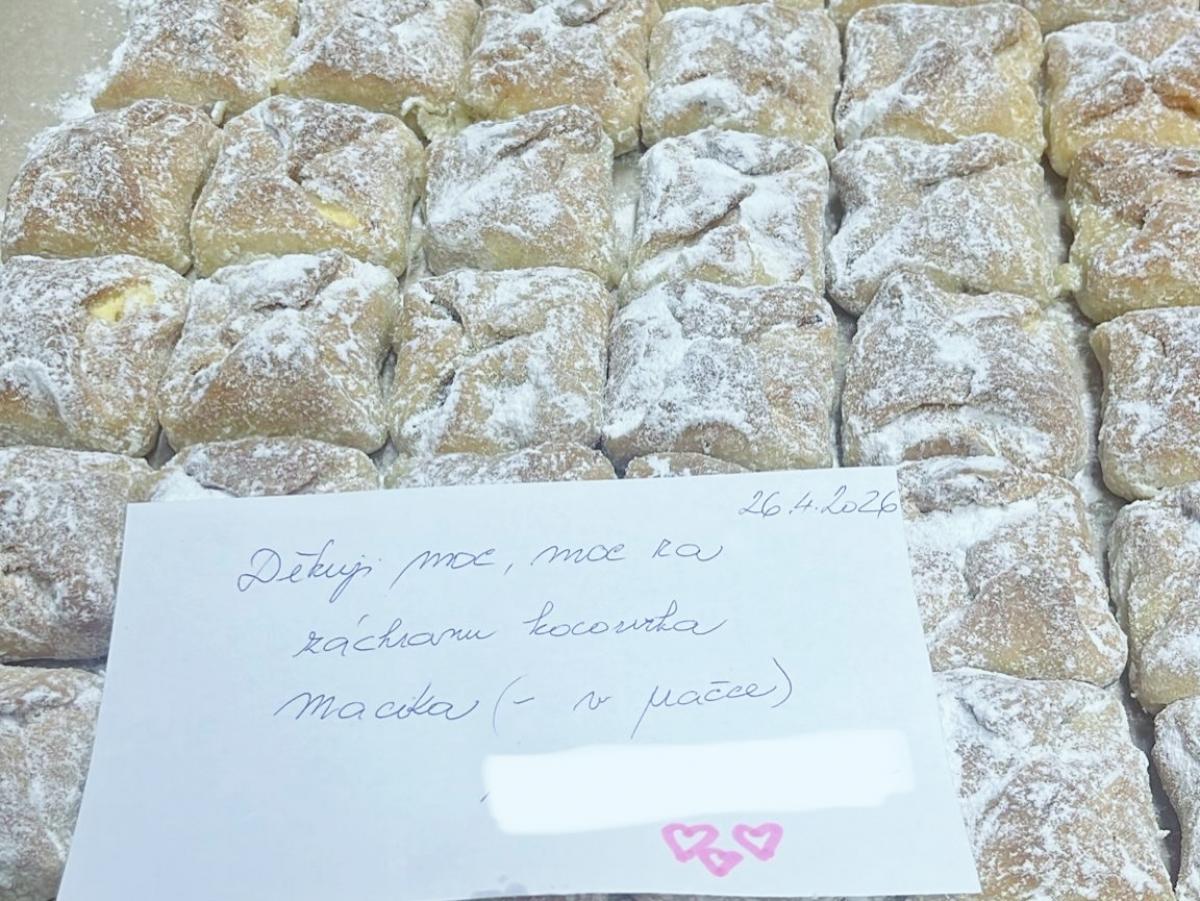 26.4.2026
Děkuji moc, moc za
záchranu kocourka
Macíka (- v pračce)